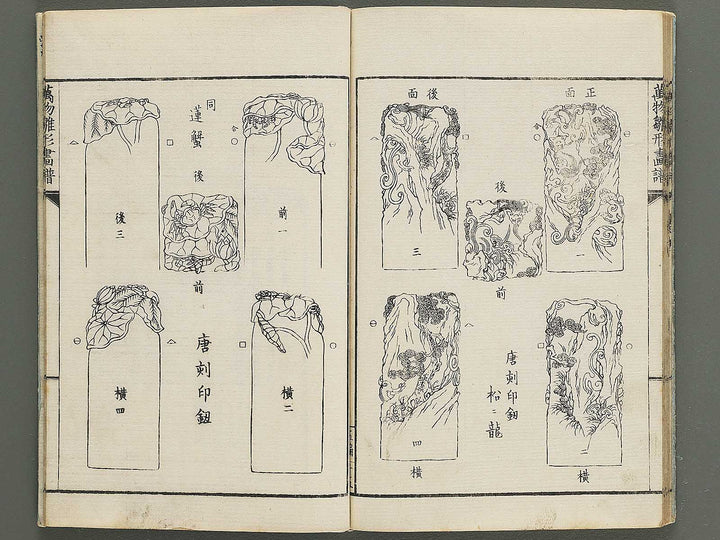 萬物雛形畫譜
正面
一
後面
三
後
前
二
橫
唐刻印鈕
松ニ龍
四
橫
同
蓮蟹
前一
後
前
後三
橫二
唐刻印鈕
橫四
萬物雛形畫譜